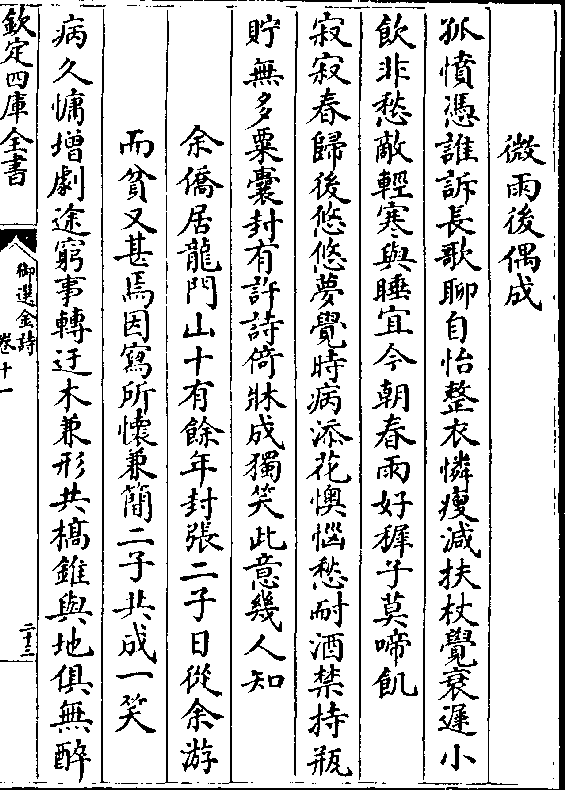 微雨後偶成
孤憤憑誰訴長歌聊自怡整衣憐瘦減扶杖覺衰遲小
飲非愁敵輕寒與睡宜今朝春雨好穉子莫啼飢
寂寂春歸後悠悠夢覺時病添花懊惱愁耐酒禁持瓶
貯無多粟囊封有許詩倚牀成獨笑此意幾人知
余僑居龍門山十有餘年封張二子日從余游
而貧又甚焉因寫所懷兼簡二子共成一笑
病久慵增劇途窮事轉迂木兼形共槁錐與地俱無醉
欽定四庫全書
御選金詩
卷十一
二十三